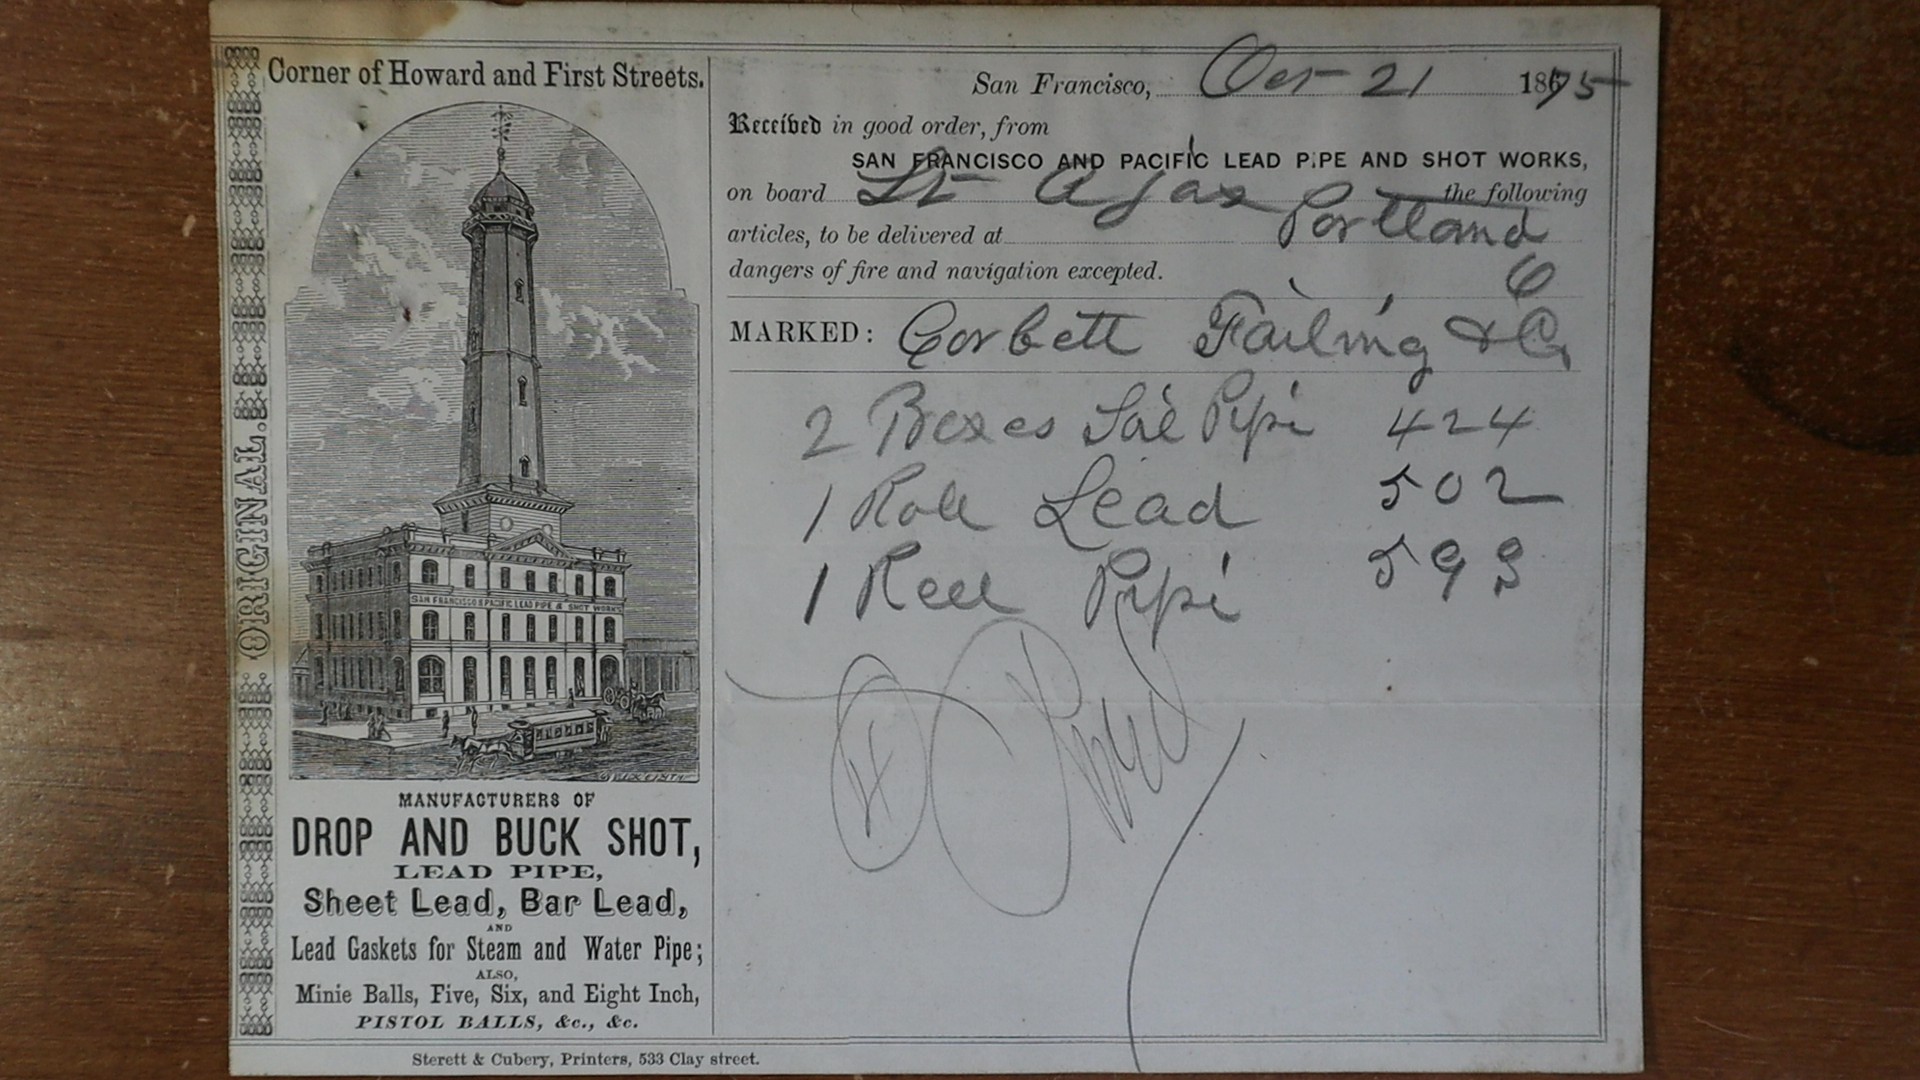 Corner of Howard and First Streets.
ORIGINAL.
SAN FRANCISCO & PACIFIC LEAD PIPE & SHOT WORKS
MANUFACTURERS OF
DROP AND BUCK SHOT,
LEAD PIPE,
Sheet Lead, Bar Lead,
AND
Lead Gaskets for Steam and Water Pipe;
ALSO,
Minie Balls, Five, Six, and Eight Inch,
PISTOL BALLS, &c., &c.
San Francisco, Oct 21 1875
Received in good order, from
SAN FRANCISCO AND PACIFIC LEAD PIPE AND SHOT WORKS,
on board St Ajax the following
articles, to be delivered at Portland
dangers of fire and navigation excepted.
MARKED: Corbett Failing & Co
2 Boxes Pipe 424
1 Roll Lead 502
1 Reel Pipe 593
Sterett & Cubery, Printers, 533 Clay street.